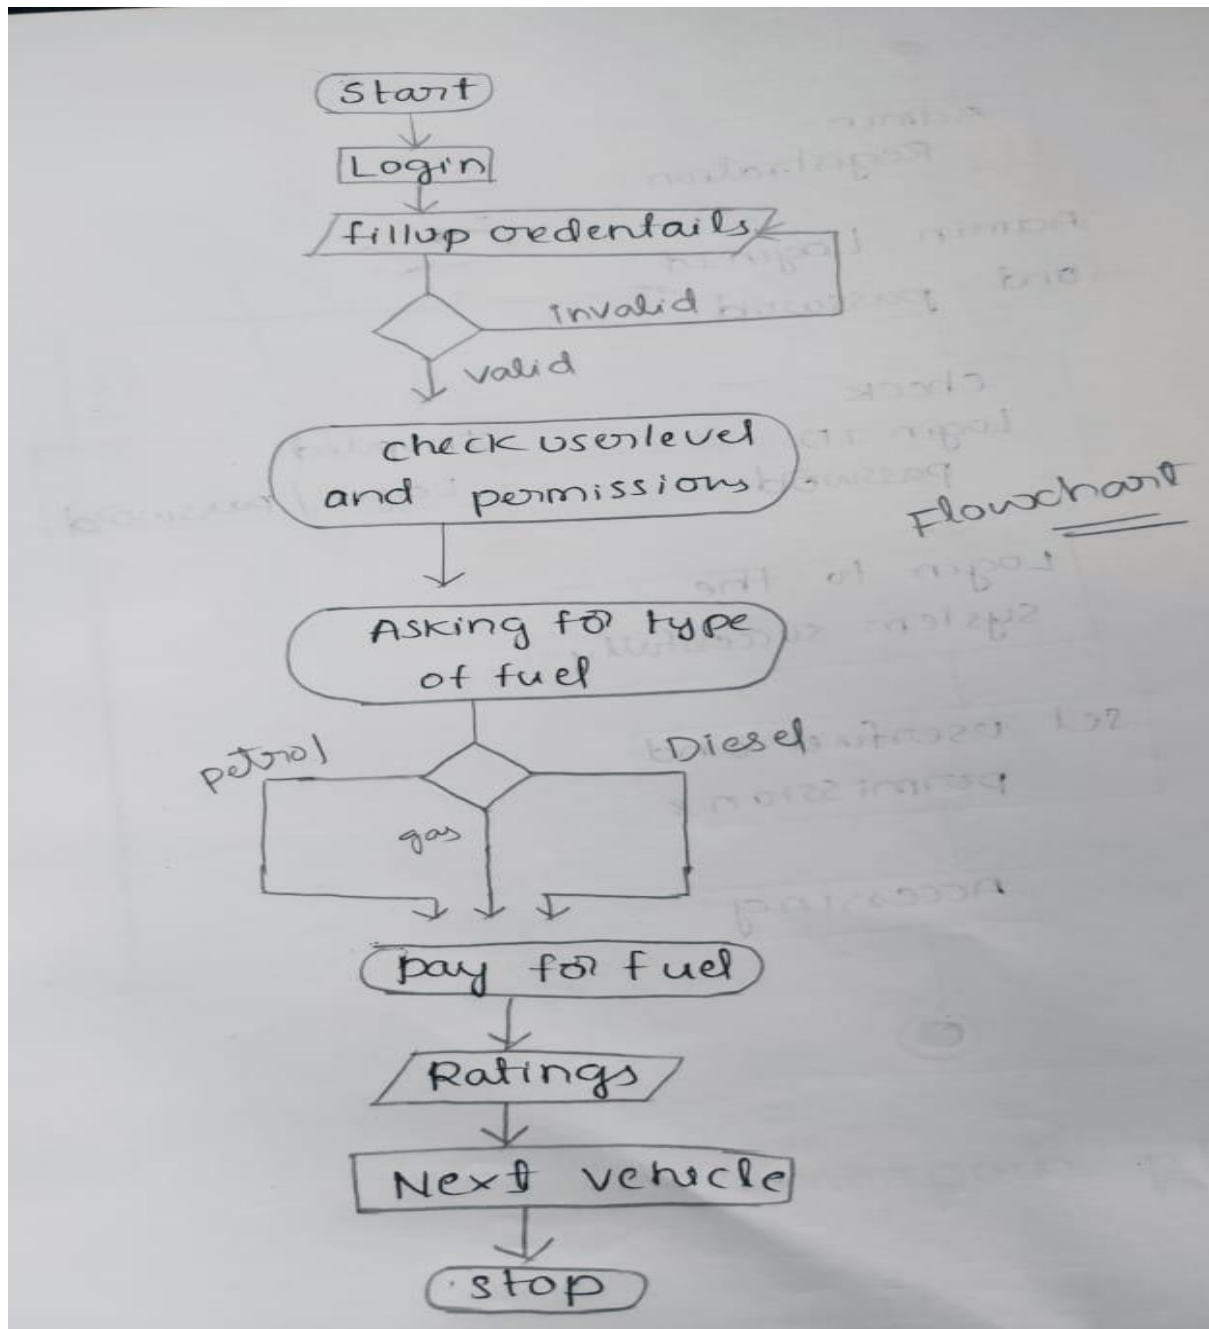 Start
Login
fillup credentails
invalid
valid
check userlevel
and permissions
Flowchart
Asking for type
of fuel
petrol
Diesel
gas
pay for fuel
Ratings
Next vehicle
stop